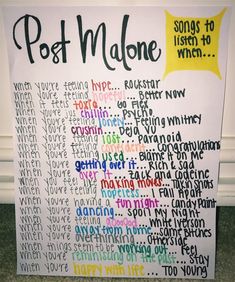 Post Malone
songs to
listen to
when...
when you're feeling hype... ROCKSTAR
when you're feeling hopeful... Better Now
when it feels toxic... Go Flex
when you're just chillin... Psycho
when you're feeling lonely... Feeling Whitney
when you're crushin... Deja Vu
when you're feeling lost... Paranoid
when you're feeling confident... Congratulations
when you're feeling used... Blame it on Me
when you're getting over it... Rich & Sad
when you're over it... Zack and Codeine
when you feel like making moves... Takin Shots
when you're feeling hopeless... I Fall Apart
when you're having a fun night... Candy Paint
when you're dancing... Spoil My Night
when you're feeling... White Iverson
when you're away from home... Same Bitches
when you're overthinking... Otherside
when things seem to be working out... Feel
when you're reminiscing on the past... Stay
when you're happy with life... Too Young